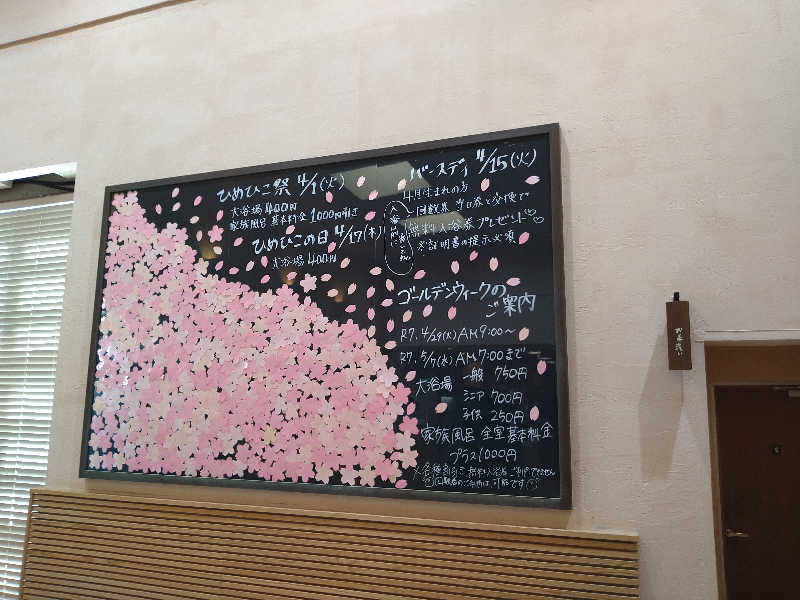 ひめひこ祭 4/1(火)
大浴場 400円
家族風呂 基本料金 1000円引き
ひめひこの日 4/17(木)
大浴場 400円
バースデイ 4/15(火)
4月生まれの方
回数券 当日券と交換で
無料入浴券プレゼント♡♡
※証明書の提示必須
入浴前に
ゴールデンウィークの
ご案内
R7. 4/29(火) AM9:00～
R7. 5/7(水) AM7:00まで
大浴場 一般 750円
シニア 700円
子供 250円
家族風呂 全室基本料金
プラス1000円
※各種割引
お手洗い